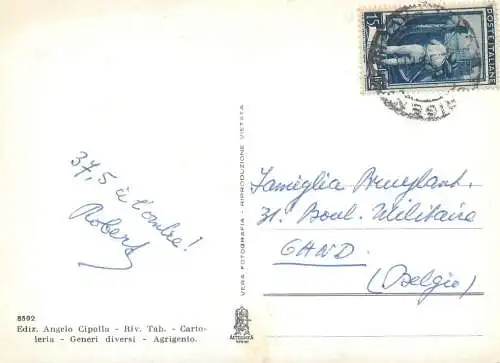 15
POSTE ITALIANE
37,5 à l'ombre!
Robert
VERA FOTOGRAFIA - RIPRODUZIONE VIETATA
Famiglia Bruylant.
31. Boul. Militaire
GAND.
(Belgio)
8502
Ediz. Angelo Cipolla - Riv. Tab. - Carto-
leria - Generi diversi - Agrigento.